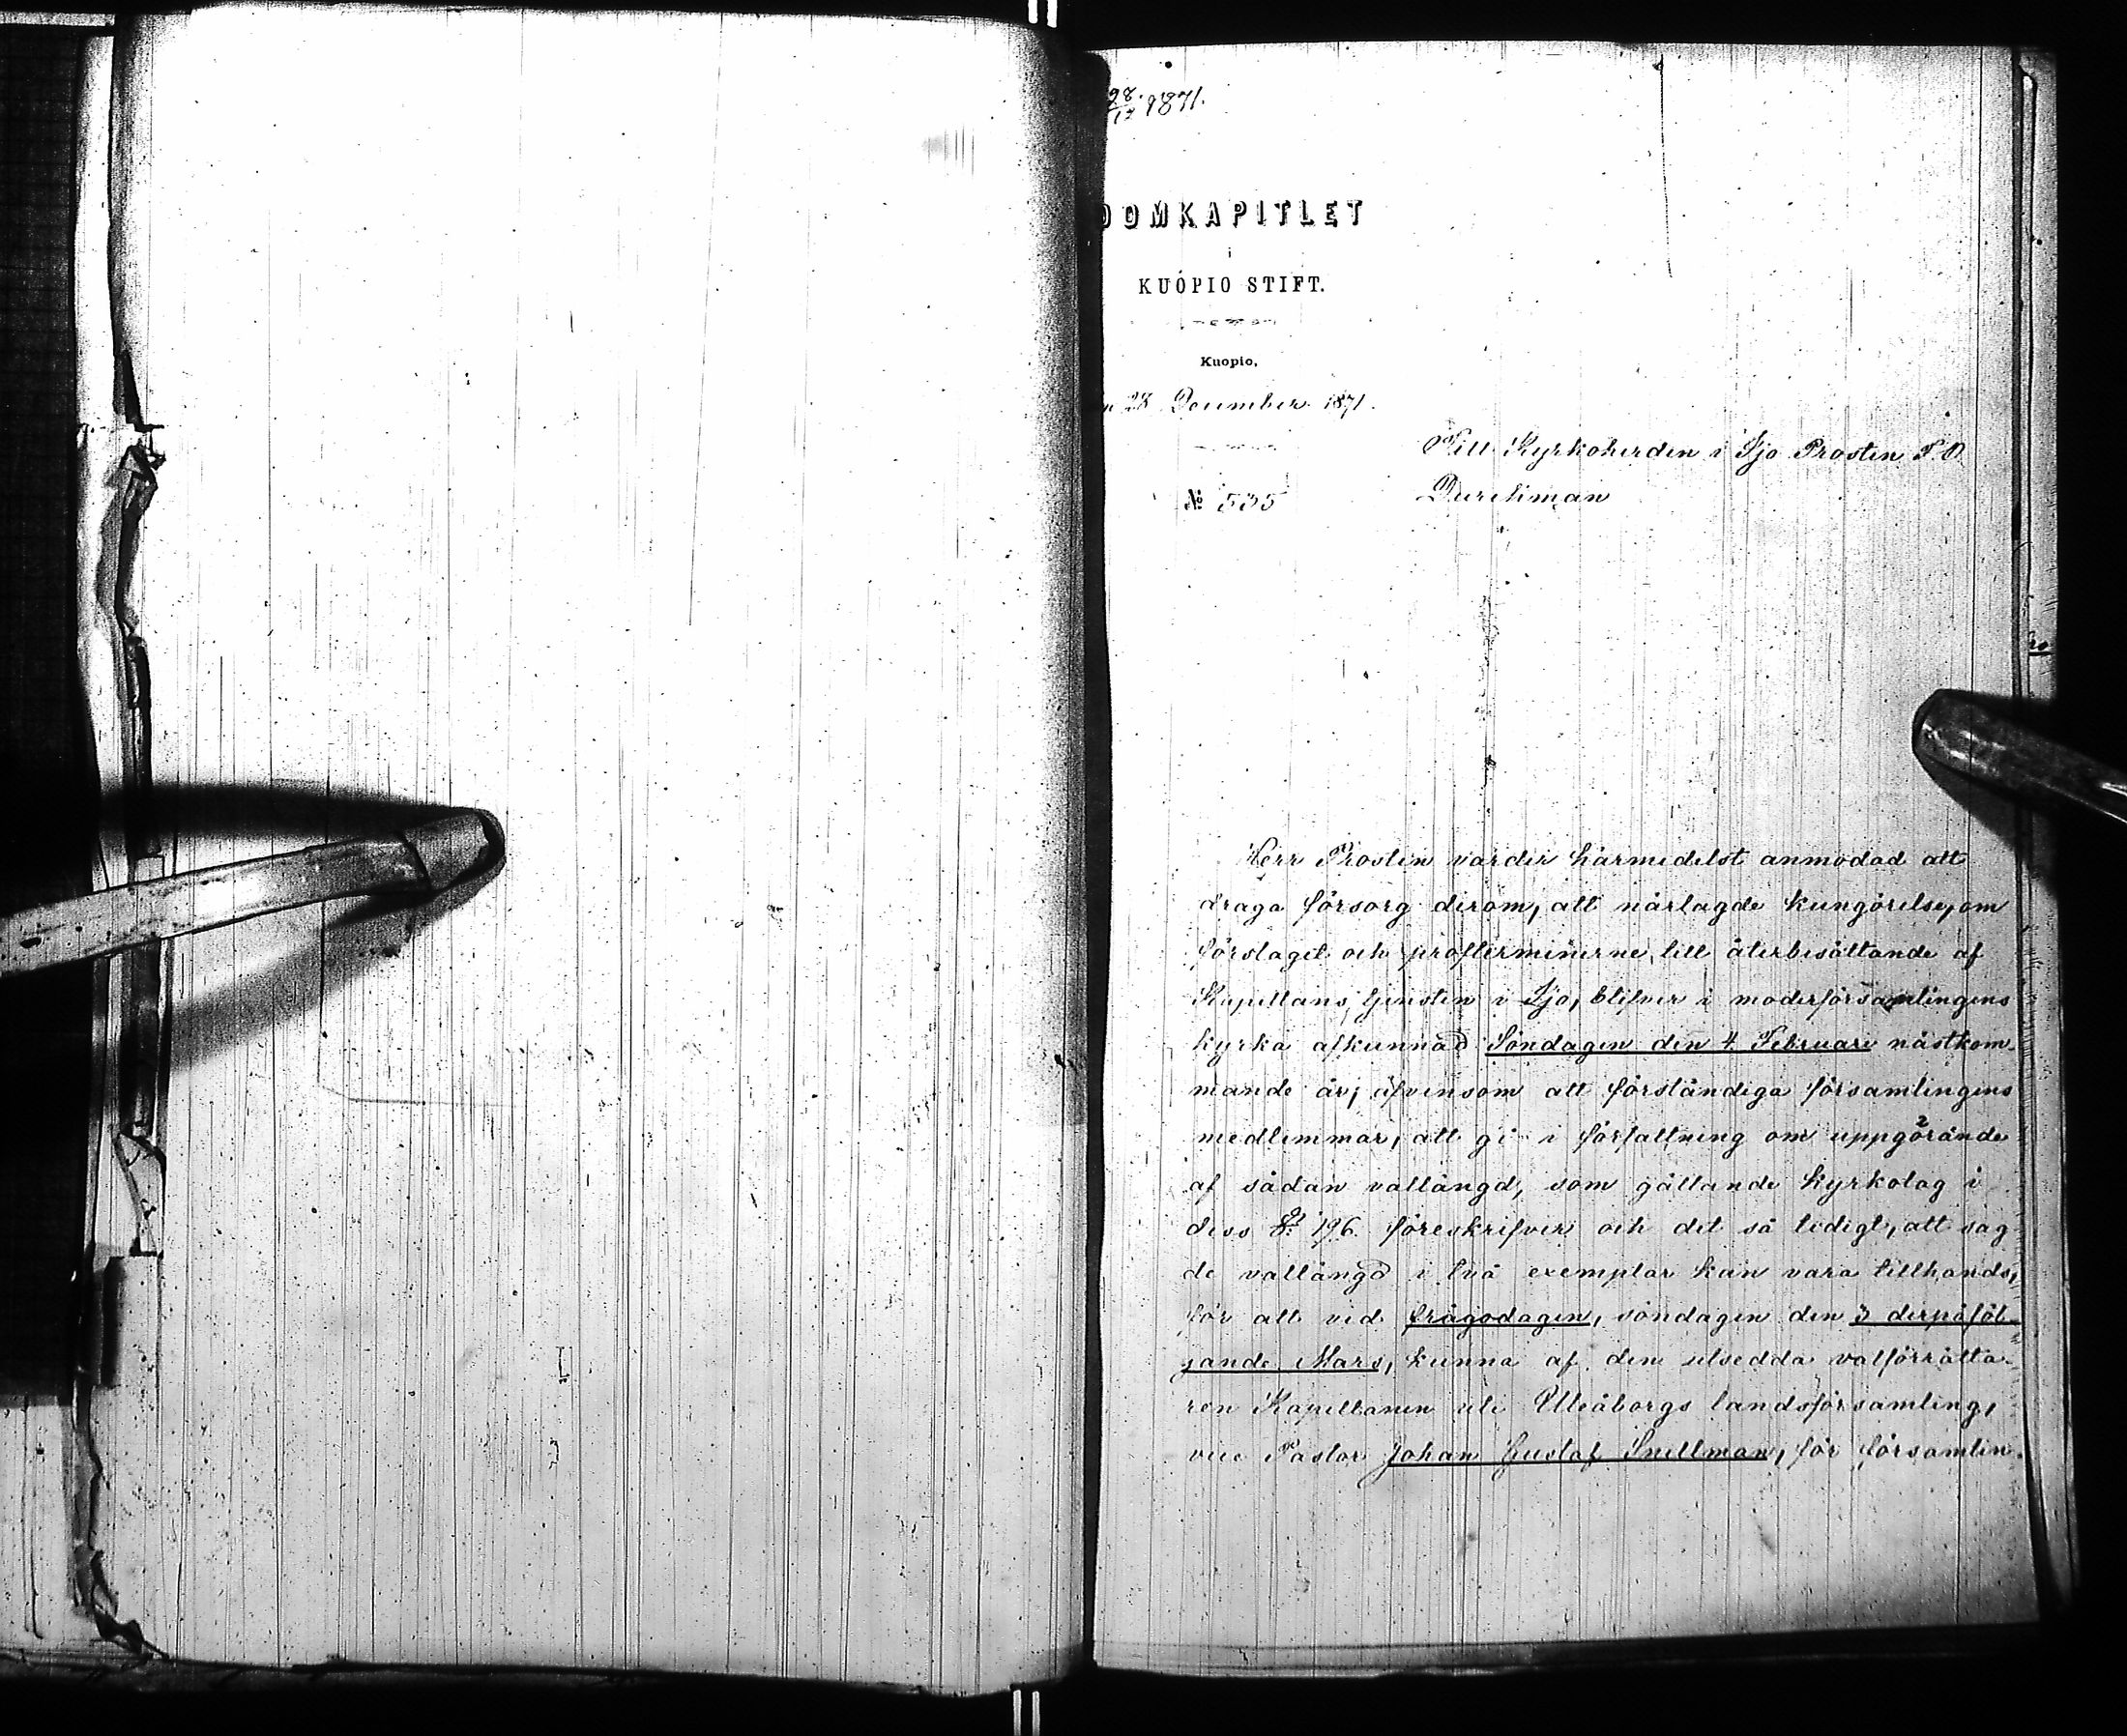 28/12 1871.
DOMKAPITLET
i
KUOPIO STIFT.
Kuopio,
n 28 December 1871.
№ 535
Till Kyrkoherden i Ijo Prosten P. O.
Durchman
Herr Prosten varder härmedelst anmodad att
draga försorg derom, att närlagde kungörelse, om
förslaget och profterminerne, till återbesättande af
Kapellans tjensten i Ijo, blifver i moderförsamlingens
kyrka afkunnad Söndagen den 4 Februari nästkom-
mande år, äfvensom att förständiga församlingens
medlemmar, att gå i författning om uppgörande
af sådan vallängd, som gällande Kyrkolag i
dess § 196 föreskrifver och det så tidigt, att sag
de vallängd i två exemplar kan vara tillhands,
för att vid frågodagen, söndagen den 3 derpåföl-
jande Mars, kunna af den utsedda valförrätta-
ren Kapellanen uti Uleåborgs landsförsamling,
vice Pastor Johan Gustaf Snellman, för församlin-